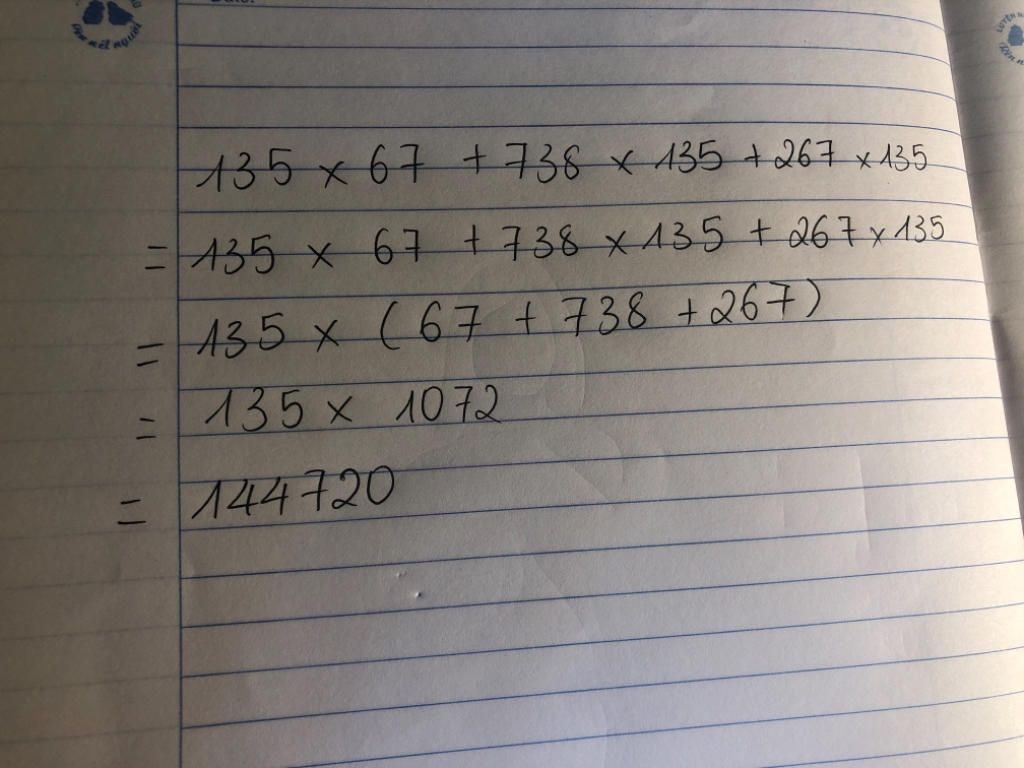 135 x 67 + 738 x 135 + 267 x 135
= 135 x 67 + 738 x 135 + 267 x 135
= 135 x (67 + 738 + 267)
= 135 x 1072
= 144720